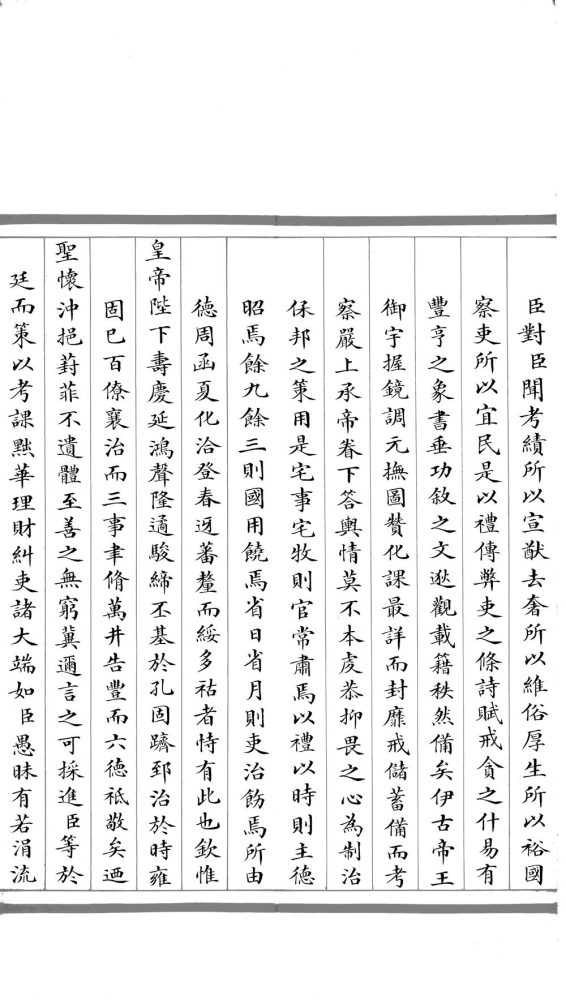 臣對臣聞考績所以宣猷去奢所以維俗厚生所以裕國
察吏所以宜民是以禮傳弊吏之條詩賦戒貪之什易有
豐亨之象書垂功敘之文逖觀載籍秩然備矣伊古帝王
御宇握鏡調元撫圖贊化課最詳而封靡戒儲蓄備而考
察嚴上承帝眷下答輿情莫不本虔恭抑畏之心為制治
保邦之策用是宅事宅牧則官常肅焉以禮以時則主德
昭焉餘九餘三則國用饒焉省日省月則吏治飭焉所由
德周函夏化洽登春迓蕃釐而綏多祜者恃有此也欽惟
皇帝陛下壽慶延鴻聲隆遹駿締丕基於孔固躋郅治於時雍
固已百僚襄治而三事聿脩萬井告豐而六德祗敬矣迺
聖懷沖挹葑菲不遺體至善之無窮冀邇言之可採進臣等於
廷而策以考課黜華理財糾吏諸大端如臣愚昧有若涓流